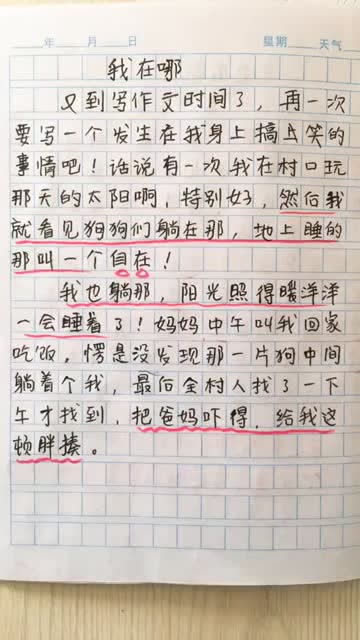 年 月 日 星期 天气
我在哪
又到写作文时间了，再一次
要写一个发生在我身上搞笑的
事情吧！话说有一次我在村口玩
那天的太阳啊，特别好，然后我
就看见狗狗们躺在那，地上睡的
那叫一个自在！
我也躺那，阳光照得暖洋洋
一会睡着了！妈妈中午叫我回家
吃饭，愣是没发现那一片狗中间
躺着个我，最后全村人找了一下
午才找到，把爸妈吓得，给我这
顿胖揍。